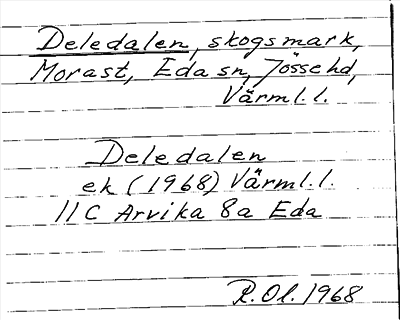 Deledalen, skogsmark,
Morast, Eda sn, Jösse hd,
Värml.l.
Deledalen
ek (1968) Värml.l.
11C Arvika 8a Eda
R.Ol. 1968